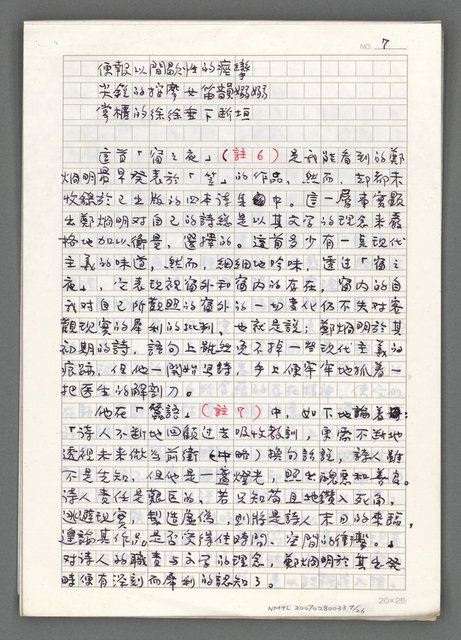 NO. 7
便報以間歇性的痙攣
尖銳的按摩女笛韻嫋嫋
掌櫃的徐徐垂下断垣
這首「窗之夜」(註6)是我能看到的鄭
烱明最早發表於「笠」的作品,然而,却都未
收錄於已出版的四本詩集中。這一層事實顯
出鄭烱明对自己的詩總是以其文字的理念來嚴
格地加以衡量,選擇的。這首多少有一点現代
主義的味道,然而,細細地吟味,透过「窗之
夜」,它表現視窗外和窗內的存在,窗內的自
我对自己所觀照的窗外的一切变化仍不失对客
觀現實的犀利的批判。也就是說:鄭烱明於其
初期的詩,語句上雖然免不掉一些現代主義的
痕跡,但他一開始寫詩,手上便牢牢地抓着一
把医生的解剖刀。
他在「蠶語」(註7)中,如下地論着:
「詩人不断地回顧过去吸收教訓,更需不断地
透視未來做当前衝(中略)換句話說,詩人雖
不是先知,但他是一盞燈光,照出醜惡和善良。
詩人責任是艱巨的,若只知苟且地鑽入死角,
逃避現實,製造虛偽,則將是詩人末日的來臨,
遑論其作品是否深得住時間、空間的衝擊。」
对詩人的職責与文学的理念,鄭烱明於其出發
時便有深刻而犀利的認知了。
20×25
NMTL 20070280033, 7/26